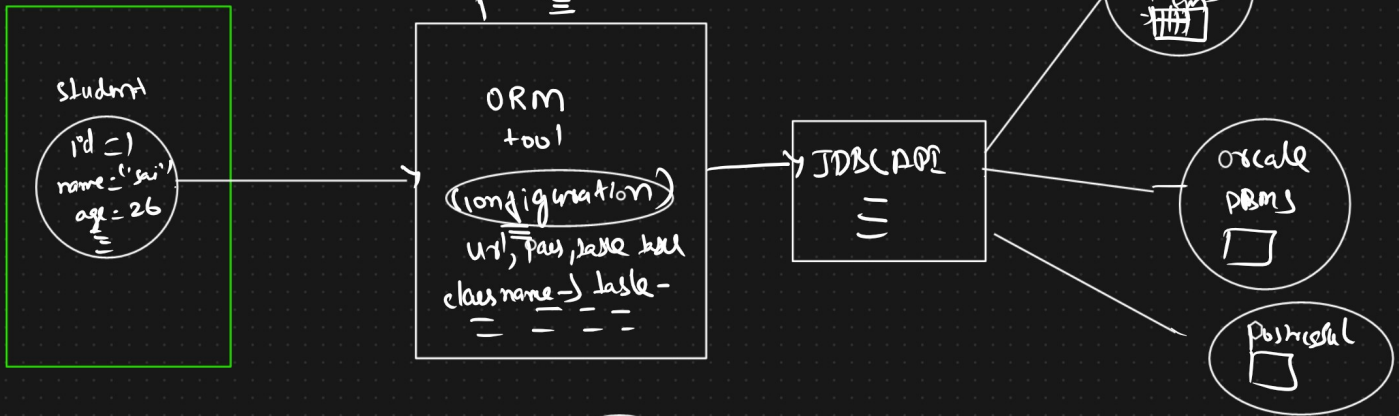 student
id = 1
name = "sai"
age = 26
ORM
tool
configuration
url, pass,
class name → table -
JDBC API
orcale
DBMS